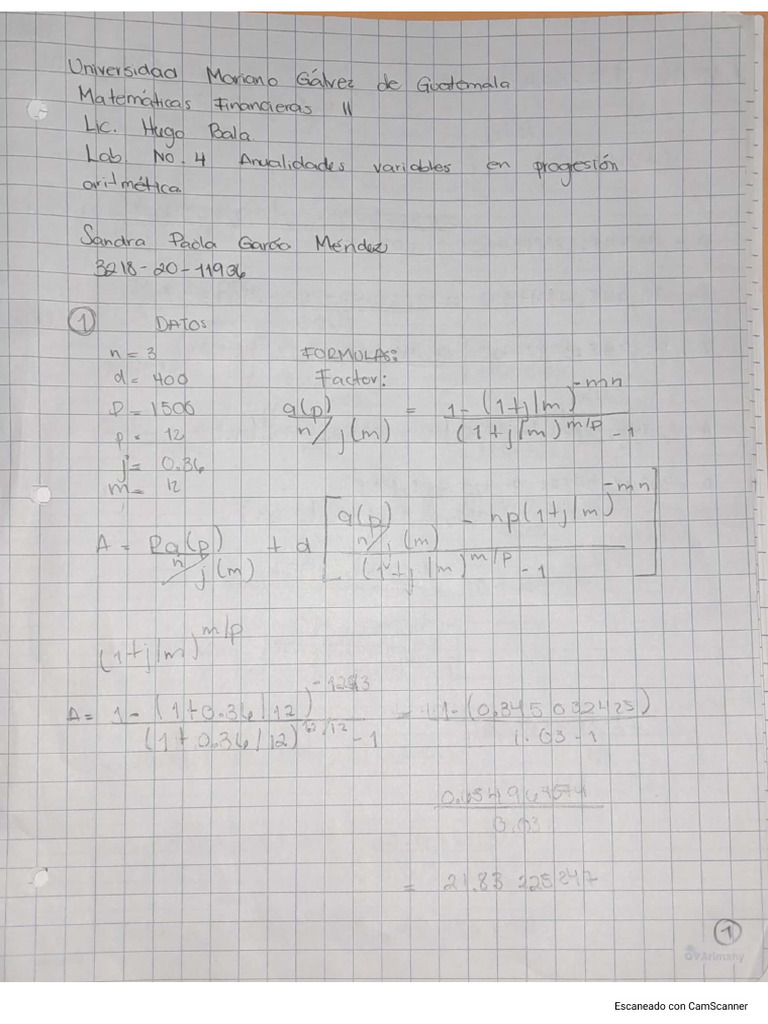 Universidad Mariano Gálvez de Guatemala
Matemáticas Financieras II
Lic. Hugo Bala
Lab. No. 4 Anualidades variables en progesión
aritmética.
Sandra Paola García Méndez
3218-20-11936
1 DATOS
n = 3 FORMULAS:
d = 400 Factor:
P = 1500
p = 12
j = 0.36
m = 12
a(p) n/ j(m) = 1-(1+j/m)^-mn / (1+j/m)^m/p - 1
A = Pa(p) n/ j(m) + d [ a(p) n/ j(m) - np(1+j/m)^-mn / (1+j/m)^m/p - 1 ]
(1+j/m)^m/p
A = 1-(1+0.36/12)^-12*3 / (1+0.36/12)^12/12 - 1 = 1-(0.345032425) / 1.03-1
0.654967574 / 0.03
= 21.83225247
1
Arimany
Escaneado con CamScanner